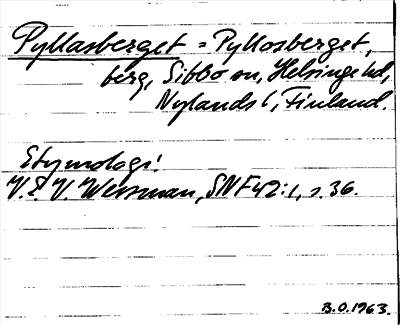 Pyllasberget = Pyllosberget,
berg, Sibbo sn, Helsinge hd,
Nylands l, Finland.
Etymologi:
V.E.V. Wessman, SNF 42:1, s. 36.
B.O. 1963.